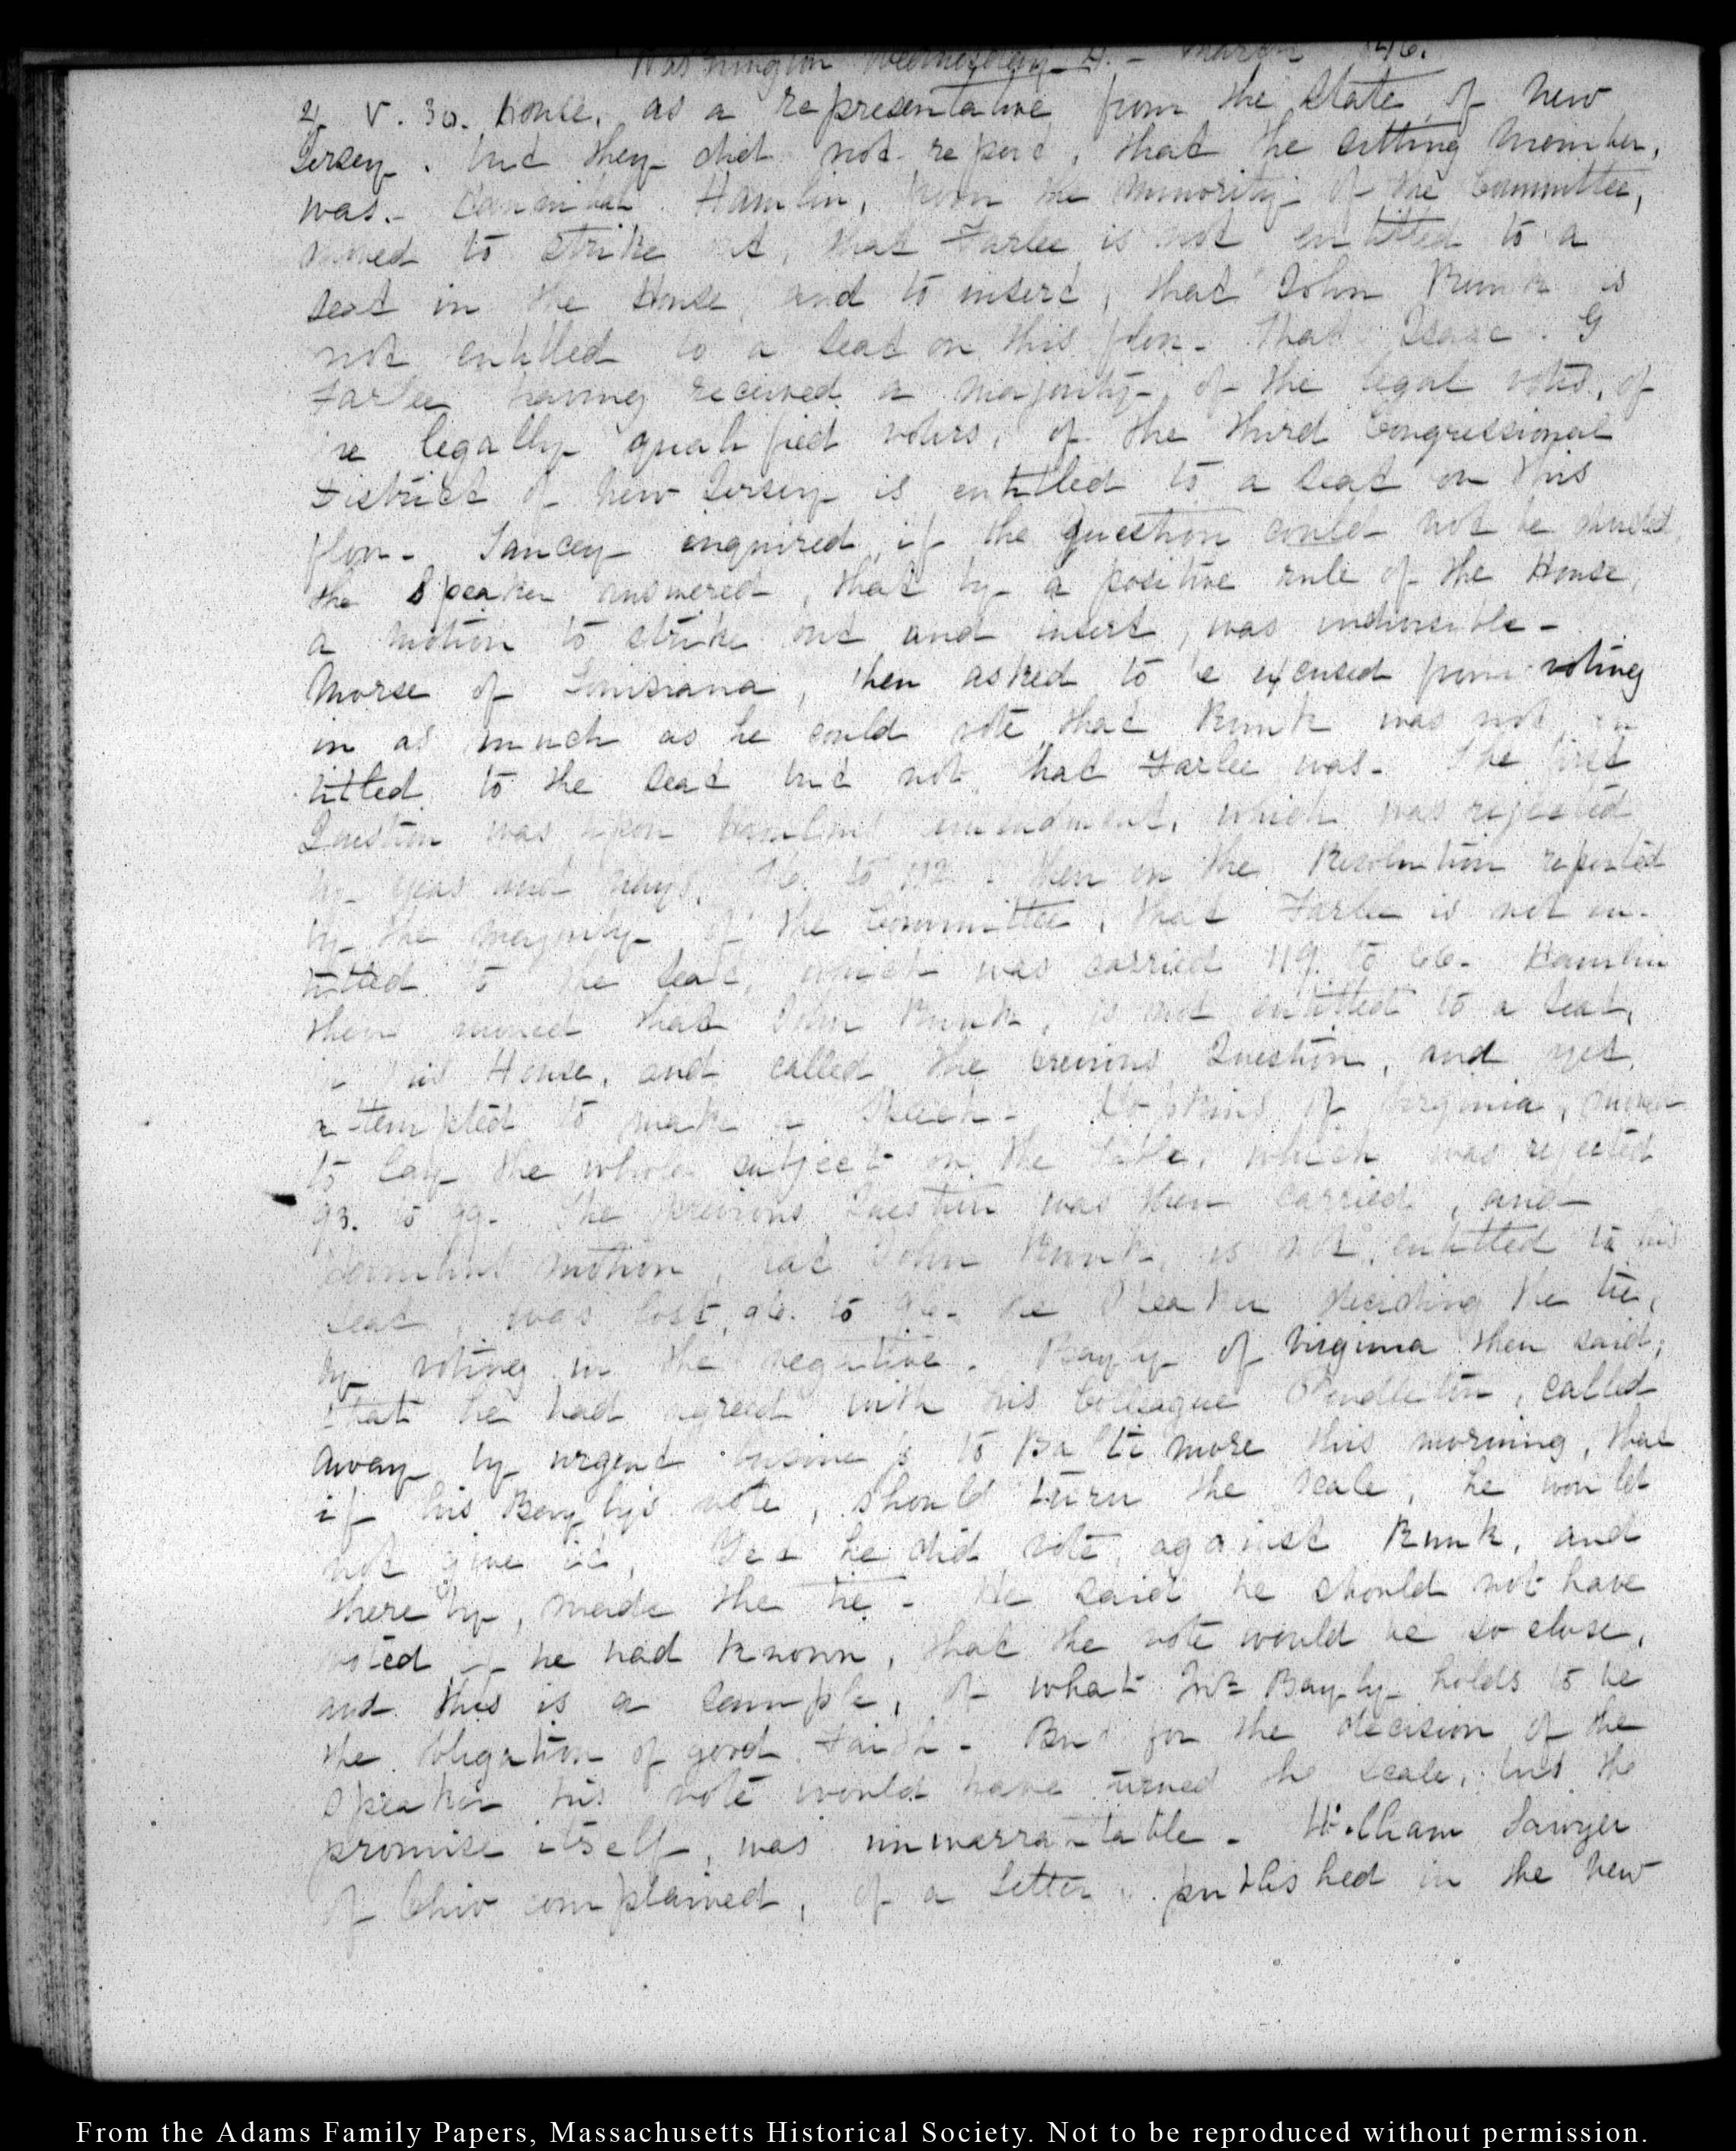 Washington Wednesday 4. – March 1846.
4 V. 30. House, as a representative from the State of New
Jersey. but they did not report, that the sitting member,
was. – Hamlin, from the minority of the Committee,
moved to strike out, that Farlee is not entitled to a
seat in the House and to insert, that John Runk is
not entitled to a seat on this floor – That Isaac. G
Farlee having received a majority of the legal votes, of
legally qualified voters, of the third Congressional
District of New Jersey is entitled to a seat on this
floor – Yancey inquired, if the question could not be divided,
the Speaker answered, that by a positive rule of the House,
a motion to strike out and insert, was indivisible –
Morse of Louisiana, then asked to be excused from voting
in as much as he could vote that Runk was not en
titled to the seat but not that Farlee was – The first
Question was upon amendment, which was rejected
by yeas and nays, to 112 – then on the Resolution reported
by the majority of the Committee, that Farlee is not en-
titled to the seat, which was carried 119. to 66 – Hamlin
then moved that John Runk, is not entitled to a seat,
in this House, and called the previous Question, and yet,
attempted to make a Speech – Hopkins of Virginia, moved
to lay the whole subject on the table, which was rejected
93. to 99 – The previous Question was then carried, and
motion, that John Runk, is not entitled to his
seat, was lost, 96. to 96 – the Speaker deciding the tie,
by voting in the negative. Bayly of Virginia then said;
that he had agreed with his Colleague Pendleton, called
away by urgent business to Baltimore this morning, that
if his Bayly's vote, should turn the scale, he would
not give it, Yet he did vote, against Runk, and
thereby, made the tie – He said he should not have
voted if he had known, that the vote would be so close,
and this is a sample, of what Mr Bayly holds to be
the obligation of good Faith – But for the decision of the
Speaker his vote would have turned the scale, but the
promise itself, was unwarrantable – William Sawyer
of Ohio complained, of a letter, published in the New
From the Adams Family Papers, Massachusetts Historical Society. Not to be reproduced without permission.